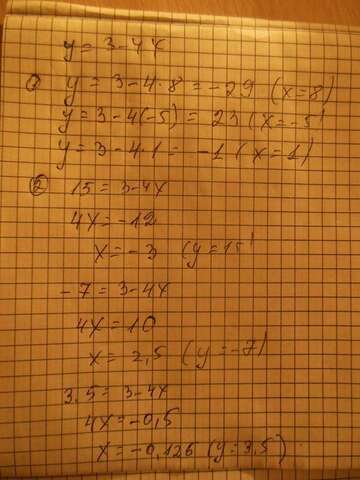 y = 3 - 4x
① y = 3 - 4 · 8 = -29 (x = 8)
y = 3 - 4(-5) = 23 (x = -5)
y = 3 - 4 · 1 = -1 (x = 1)
② 15 = 3 - 4x
4x = -12
x = -3 (y = 15)
-7 = 3 - 4x
4x = 10
x = 2,5 (y = -7)
3.5 = 3 - 4x
4x = -0,5
x = -0,126 (y = 3,5)